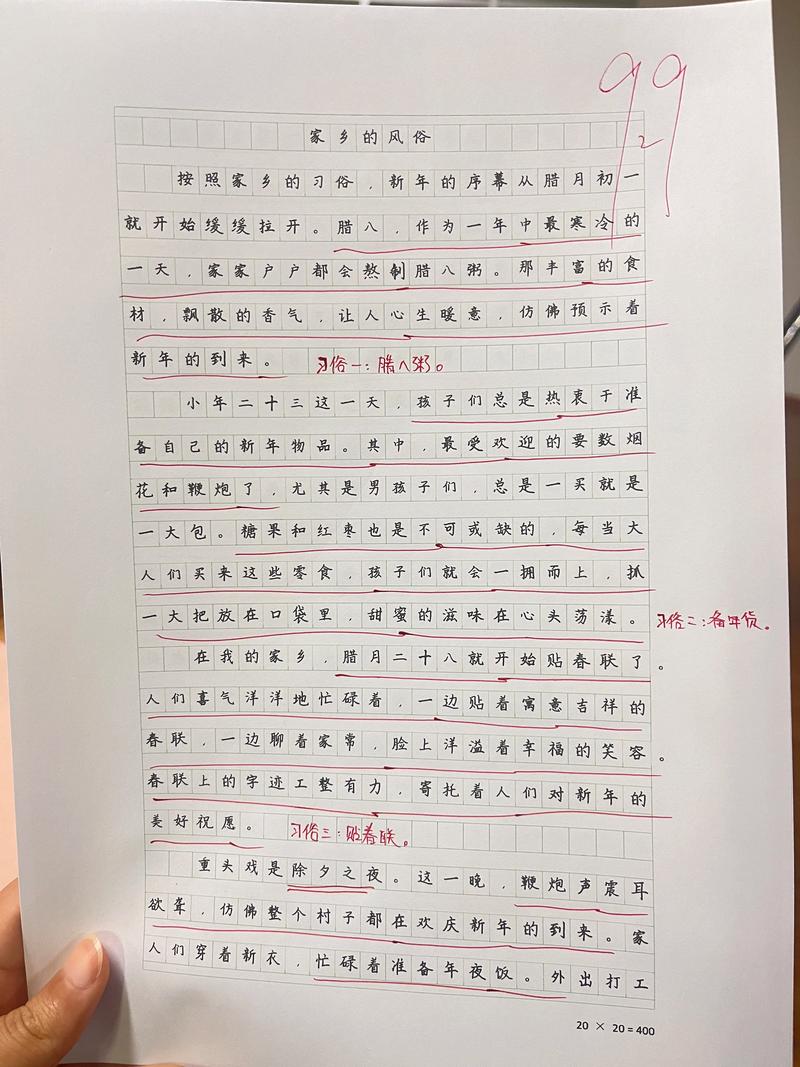 99
2
家乡的风俗
按照家乡的习俗，新年的序幕从腊月初一
就开始缓缓拉开。腊八，作为一年中最寒冷的
一天，家家户户都会熬制腊八粥。那丰富的食
材，飘散的香气，让人心生暖意，仿佛预示着
新年的到来。 习俗一：腊八粥。
小年二十三这一天，孩子们总是热衷于准
备自己的新年物品。其中，最受欢迎的要数烟
花和鞭炮了，尤其是男孩子们，总是一买就是
一大包。糖果和红枣也是不可或缺的，每当大
人们买来这些零食，孩子们就会一拥而上，抓
一大把放在口袋里，甜蜜的滋味在心头荡漾。 习俗二：备年货。
在我的家乡，腊月二十八就开始贴春联了。
人们喜气洋洋地忙碌着，一边贴着寓意吉祥的
春联，一边聊着家常，脸上洋溢着幸福的笑容。
春联上的字迹工整有力，寄托着人们对新年的
美好祝愿。 习俗三：贴春联。
重头戏是除夕之夜。这一晚，鞭炮声震耳
欲聋，仿佛整个村子都在欢庆新年的到来。家
人们穿着新衣，忙碌着准备年夜饭。外出打工
20 × 20 = 400